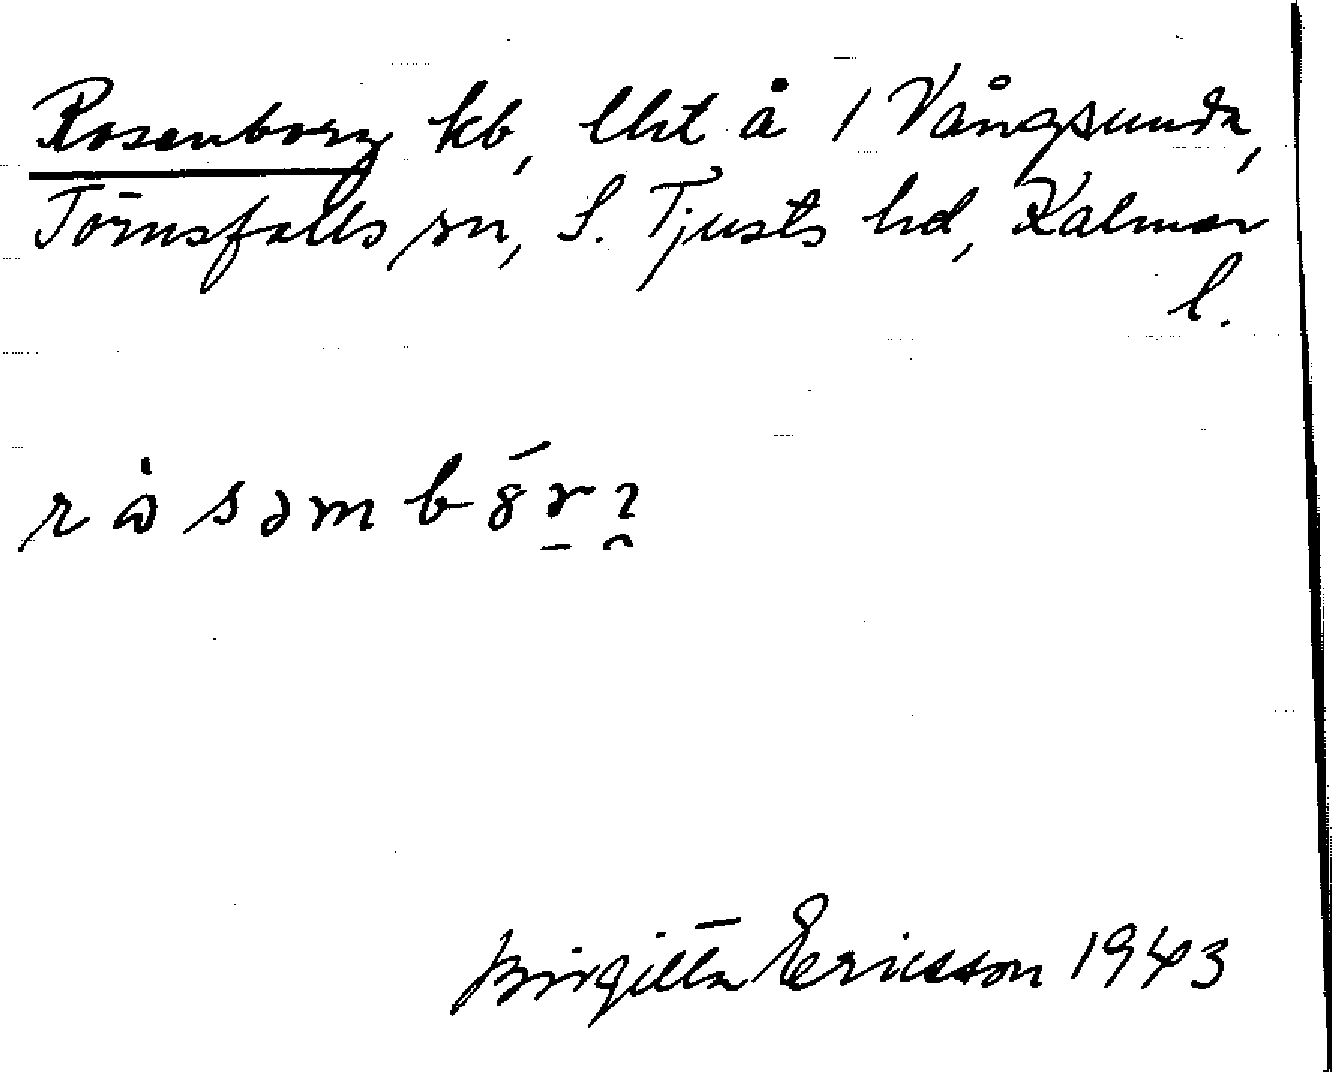 Rosenborg kb, lht å 1 Vångsunda,
Törnsfalls sn, S. Tjusts hd, Kalmar
l.
Birgitta Ericsson 1943